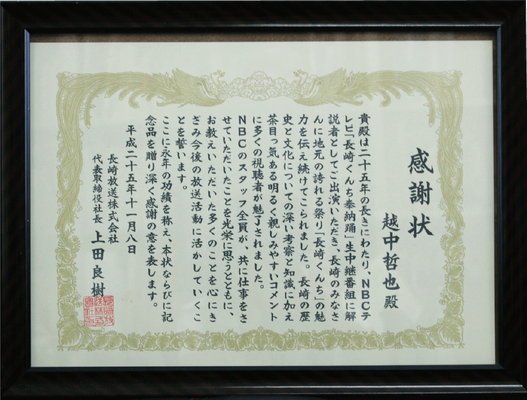 感謝状
越中哲也殿
貴殿は二十五年の長きにわたり、NBCテ
レビ「長崎くんち奉納踊」生中継番組に解
説者としてご出演いただき、長崎のみなさ
んに地元の誇れる祭り「長崎くんち」の魅
力を伝え続けてこられました。長崎の歴
史と文化についての深い考察と知識に加え
茶目っ気ある明るく親しみやすいコメント
に多くの視聴者が魅了されました。
NBCのスタッフ全員が、共に仕事をさ
せていただいたことを光栄に思うとともに、
お教えいただいた多くのことを心にき
ざみ今後の放送活動に活かしていくこ
とを誓います。
ここに永年の功績を称え、本状ならびに記
念品を贈り深く感謝の意を表します。
平成二十五年十一月八日
長崎放送株式会社
代表取締役社長 上田良樹